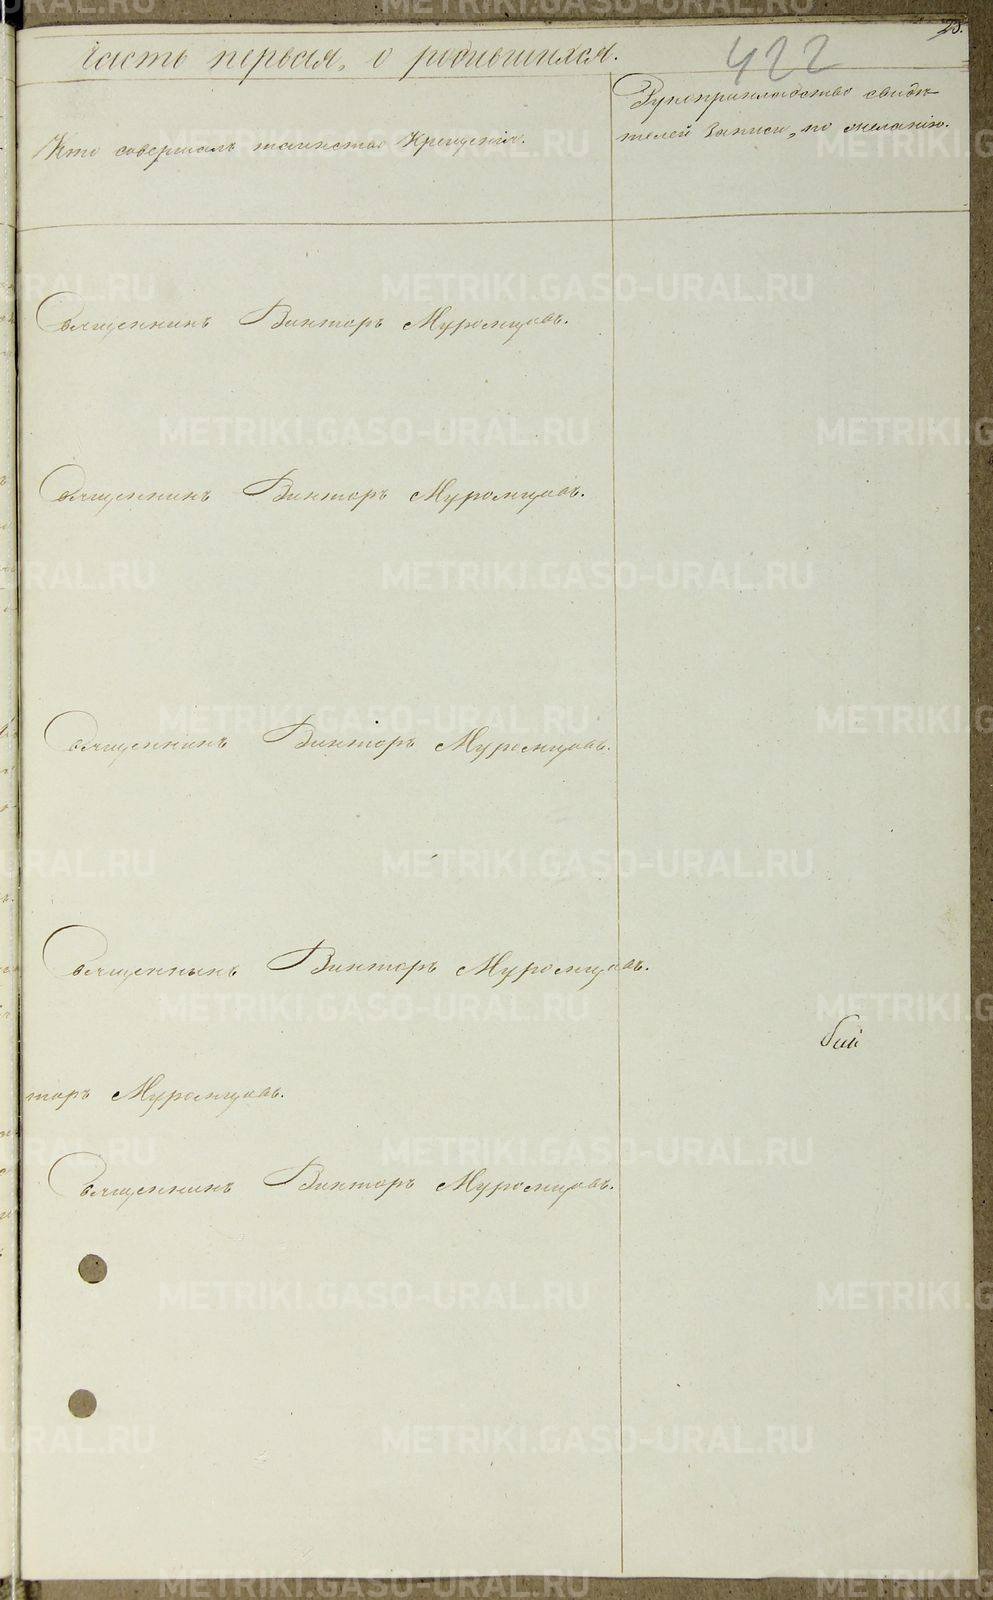 23.
Часть первая, о родившихся.
422
Кто совершалъ таинство Крещенія.
Рукоприкладство свидѣ-
телей записи, по желанію.
Священникъ Викторъ Муромцовъ.
Священникъ Викторъ Муромцовъ.
Священникъ Викторъ Муромцовъ.
Священникъ Викторъ Муромцовъ.
торъ Муромцовъ.
Священникъ Викторъ Муромцовъ.
METRIKI.GASO-URAL.RU